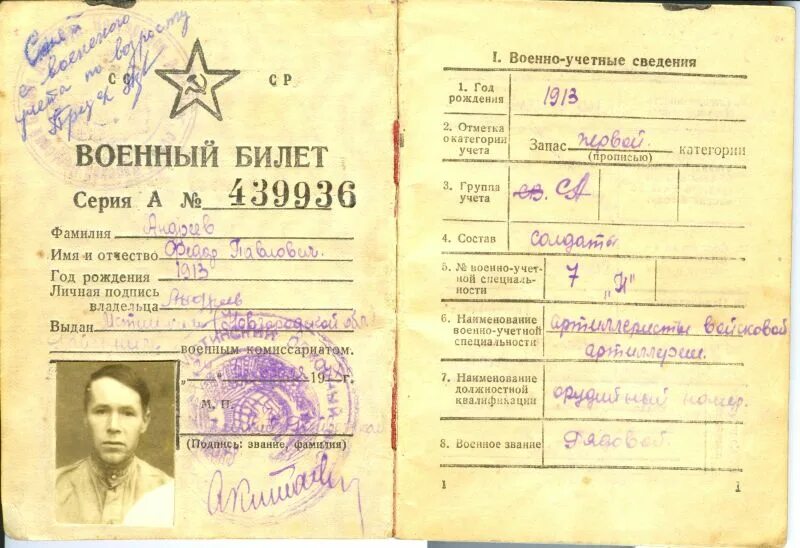 Снят
с военного
учета по возрасту
СС СР
ВОЕННЫЙ БИЛЕТ
Серия А № 439936
Фамилия Андреев
Имя и отчество Федор Павлович.
Год рождения 1913
Личная подпись
владельца Андреев
Выдан Новгородской обл
военным комиссариатом.
19 г.
М. П.
(Подпись: звание, фамилия)
I. Военно-учетные сведения
1. Год
рождения 1913
2. Отметка
о категории
учета Запас первой категории
(прописью)
3. Группа
учета СА
4. Состав солдаты
5. № военно-учет-
ной специаль-
ности 7 „Н"
6. Наименование
военно-учетной
специальности артиллеристы войсковой
артиллерии.
7. Наименование
должностной
квалификации орудийный номер.
8. Военное звание Рядовой.
1 1